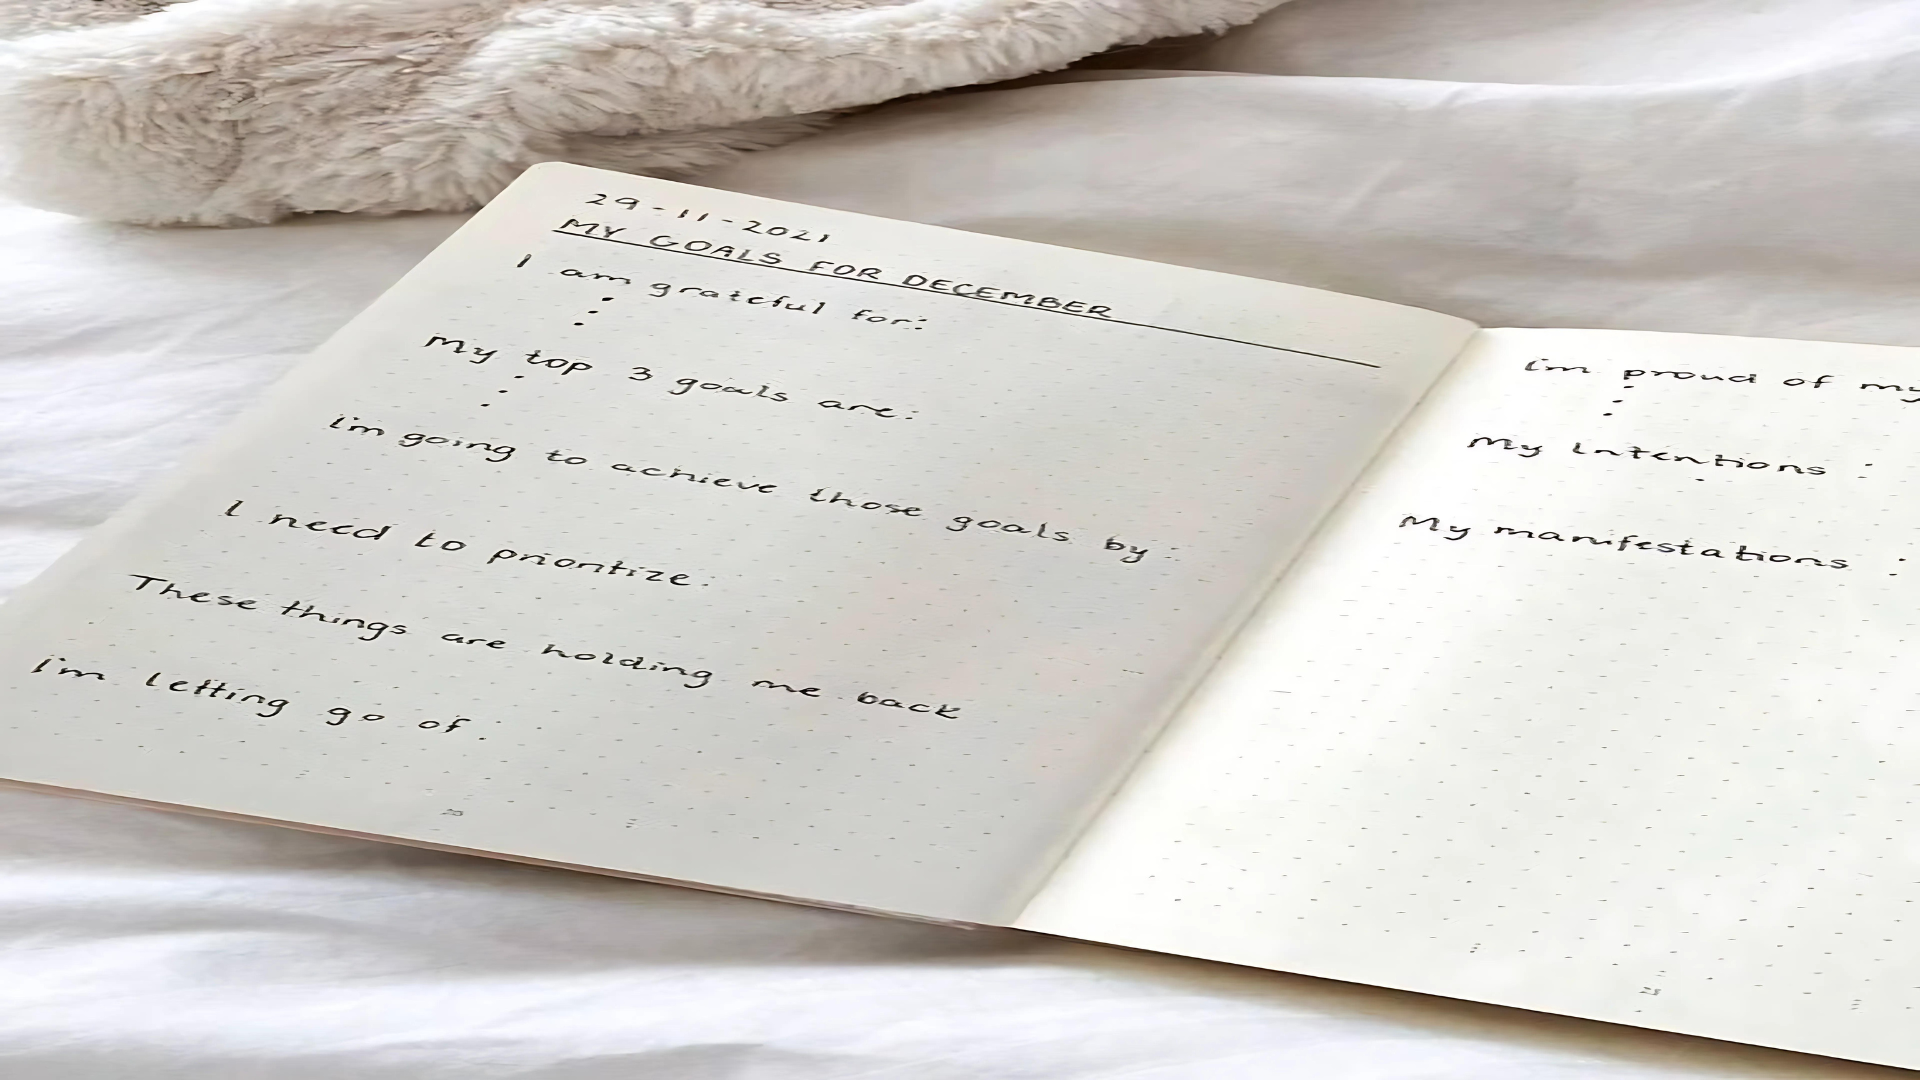 29-11-2021
MY GOALS FOR DECEMBER
I am grateful for:
My top 3 goals are:
I'm going to achieve those goals by:
I need to prioritize:
These things are holding me back
I'm letting go of:
I'm proud of my
My Intentions:
My manifestations: